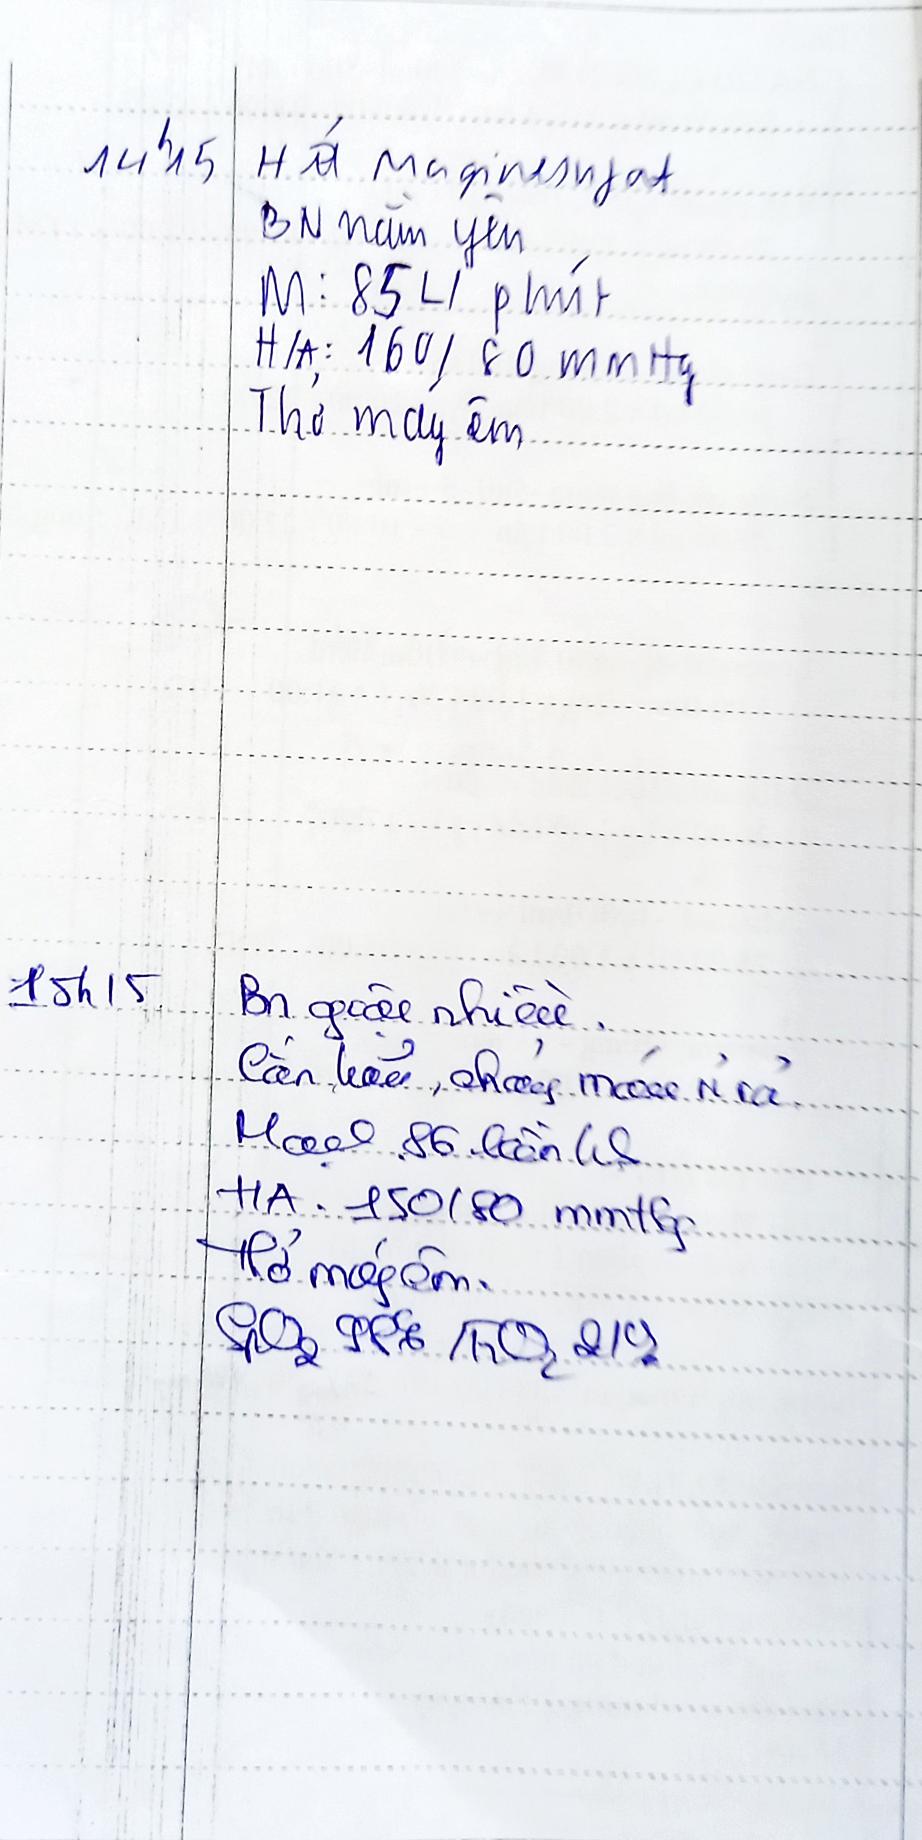 14h15 Hết Maginesunfat
BN nằm yên
M: 85 L/ phút
H/A: 160/ 80 mmHg
Thở máy êm
15h15 Bn quậy nhiều.
Cắn, chảy máu
Mạch 86 lần
HA. 150/80 mmHg
thở máy êm.
SpO2 99% /FiO2 21%